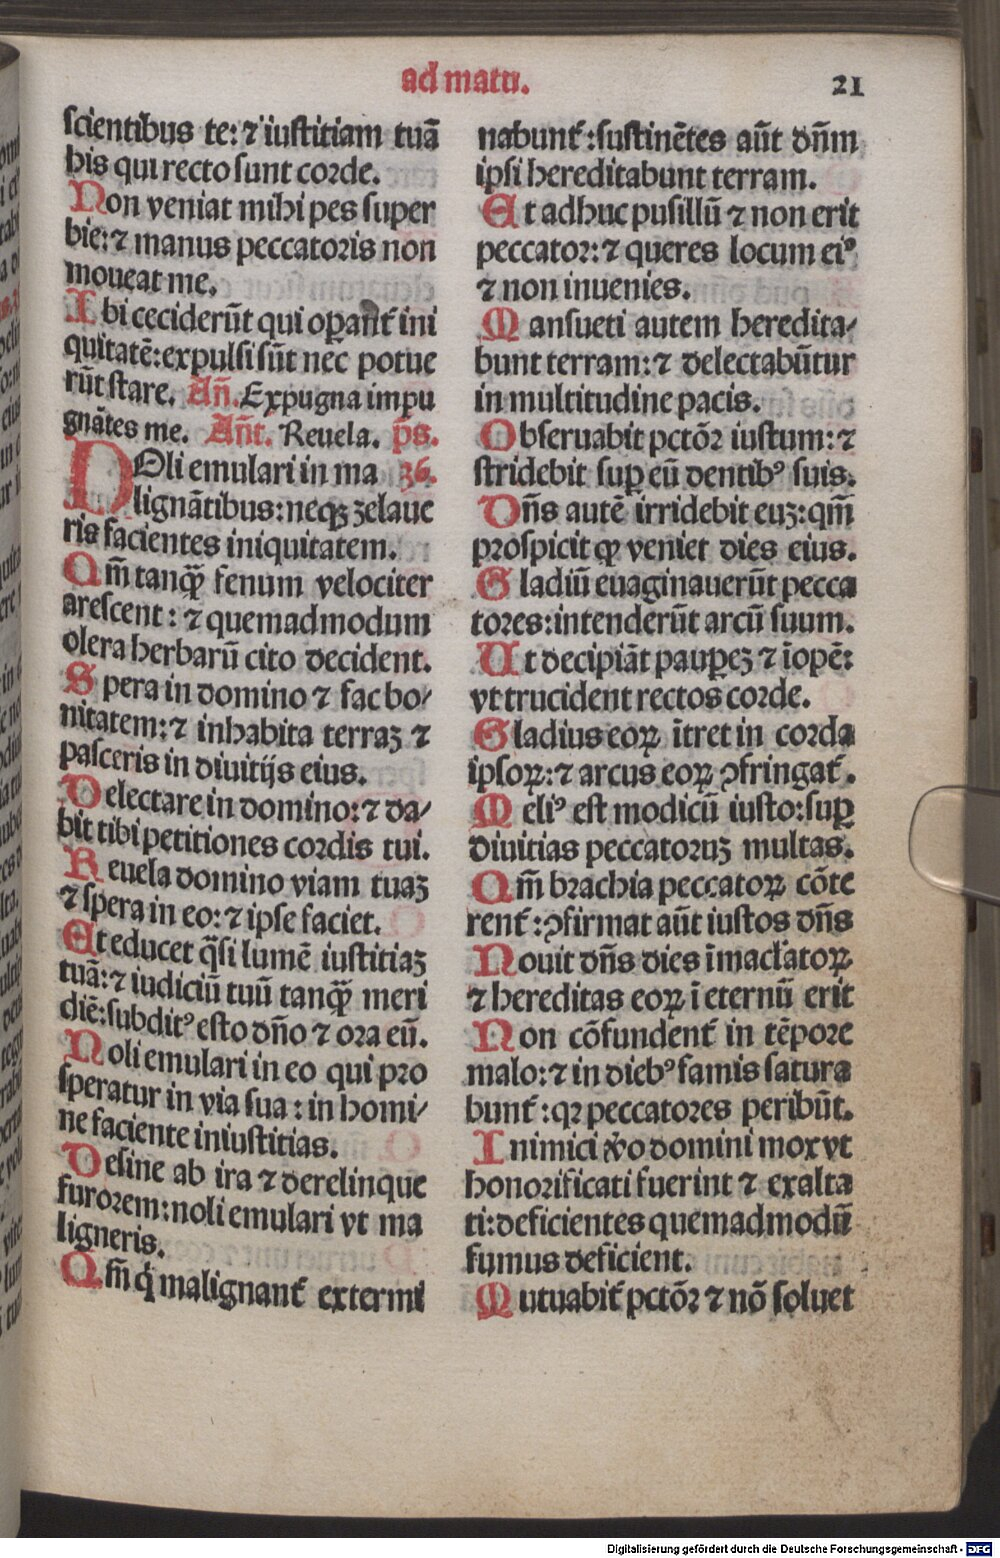 ad matu.
21
scientibus te: ⁊ iustitiam tuā
his qui recto sunt corde.
Non veniat mihi pes super
bie: ⁊ manus peccatoris non
moueat me.
Ibi ceciderūt qui operant̄ ini
quitatē: expulsi sūt nec potue
rūt stare. Añ. Expugna impu
gnātes me. Añt. Reuela. ps.
NOli emulari in ma 36.
lignātibus: neqꝫ zelaue
ris facientes iniquitatem.
Qm̄ tanqꝙ̄ fenum velociter
arescent: ⁊ quemadmodum
olera herbarū cito decident.
Spera in domino ⁊ fac bo/
nitatem: ⁊ inhabita terraꝫ ⁊
pasceris in diuitijs eius.
Delectare in domino: ⁊ da/
bit tibi petitiones cordis tui.
Reuela domino viam tuaꝫ
⁊ spera in eo: ⁊ ipse faciet.
Et educet q̄si lumē iustitiaꝫ
tuā: ⁊ iudiciū tuū tanqꝙ̄ meri
diē: subditꝰ esto dño ⁊ ora eū.
Noli emulari in eo qui pro
speratur in via sua: in homi/
ne faciente iniustitias.
Desine ab ira ⁊ derelinque
furorem: noli emulari vt ma
ligneris.
Qm̄ q̇ malignant̄ extermi
nabunt̄: sustinētes aūt dñm
ipsi hereditabunt terram.
Et adhuc pusillū ⁊ non erit
peccator: ⁊ queres locum eiꝰ
⁊ non inuenies.
Mansueti autem heredita/
bunt terram: ⁊ delectabūtur
in multitudine pacis.
Obseruabit pctōr iustum: ⁊
stridebit suꝑ eū dentibꝰ suis.
Dñs autē irridebit euꝫ: qm̄
prospicit ꝙ veniet dies eius.
Gladiū euaginauerūt pecca
tores: intenderūt arcū suum.
Ut decipiāt pauꝑeꝫ ⁊ īopē:
vt trucident rectos corde.
Gladius eoꝝ ītret in corda
ipsoꝝ: ⁊ arcus eoꝝ ꝯfringat̄.
Meliꝰ est modicū iusto: suꝑ
diuitias peccatoruꝫ multas.
Qm̄ brachia peccatoꝝ cōte
rent̄: ꝯfirmat aūt iustos dñs
Nouit dñs dies īmaclatoꝝ
⁊ hereditas eoꝝ ī eternū erit
Non cōfundent̄ in tēpore
malo: ⁊ in diebꝰ famis satura
bunt̄: qꝛ peccatores peribūt.
Inimici v̊o domini mox vt
honorificati fuerint ⁊ exalta
ti: deficientes quemadmodū
fumus deficient.
Mutuabit̄ pctōr ⁊ nō soluet
Digitalisierung gefördert durch die Deutsche Forschungsgemeinschaft - DFG